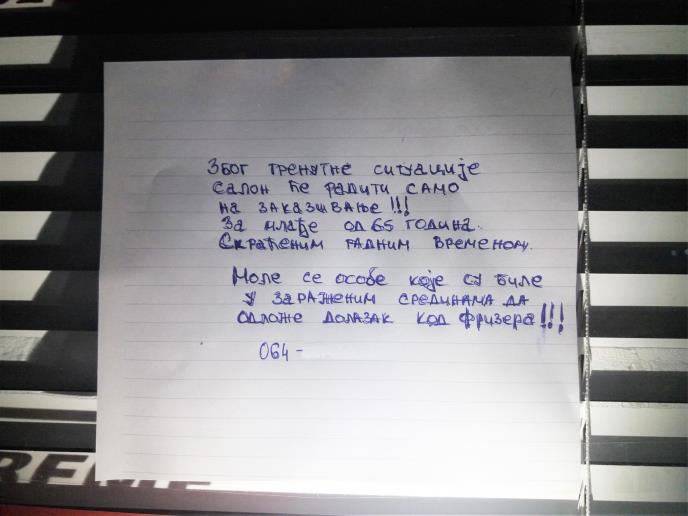 Због тренутне ситуације
салон ће радити само
на заказивање!!!
За млађе од 65 година.
Скраћеним радним временом.
Моле се особе које су биле
у зараженим срединама да
одложе долазак код фризера!!!
064-